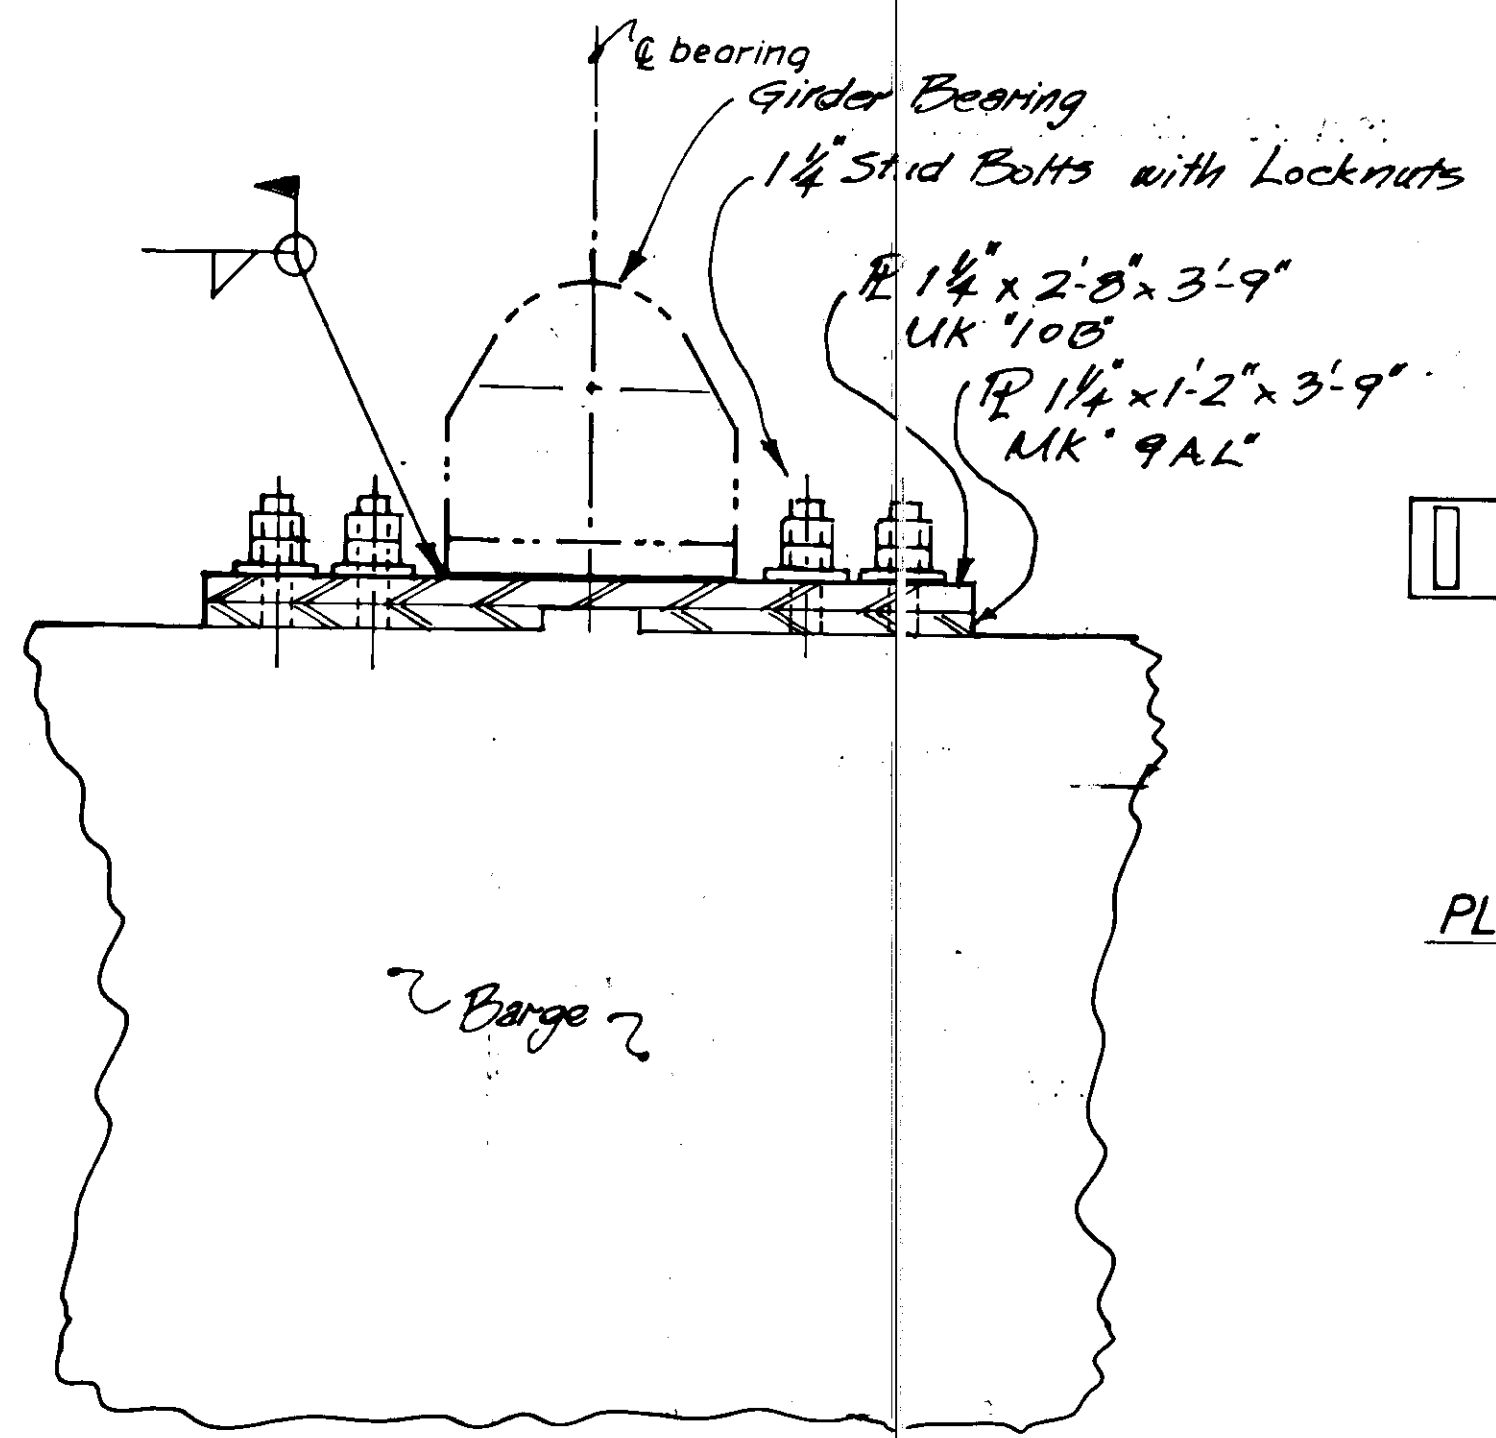 ℄ bearing
Girder Bearing
1 1/4" Stud Bolts with Locknuts
℄ 1 1/4" x 2'-8" x 3'-9"
MK "10B"
℄ 1 1/4" x 1'-2" x 3'-9"
MK "9AL"
PL
Barge